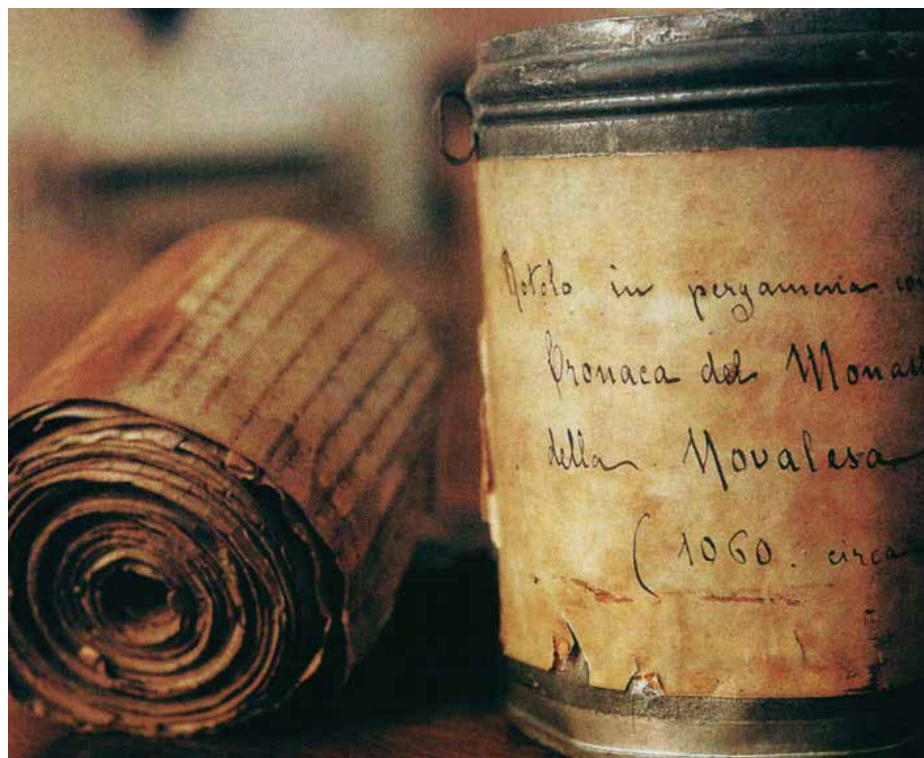 Rotolo in pergamena con
Cronaca del Monast
della Novalesa
(1060. circa